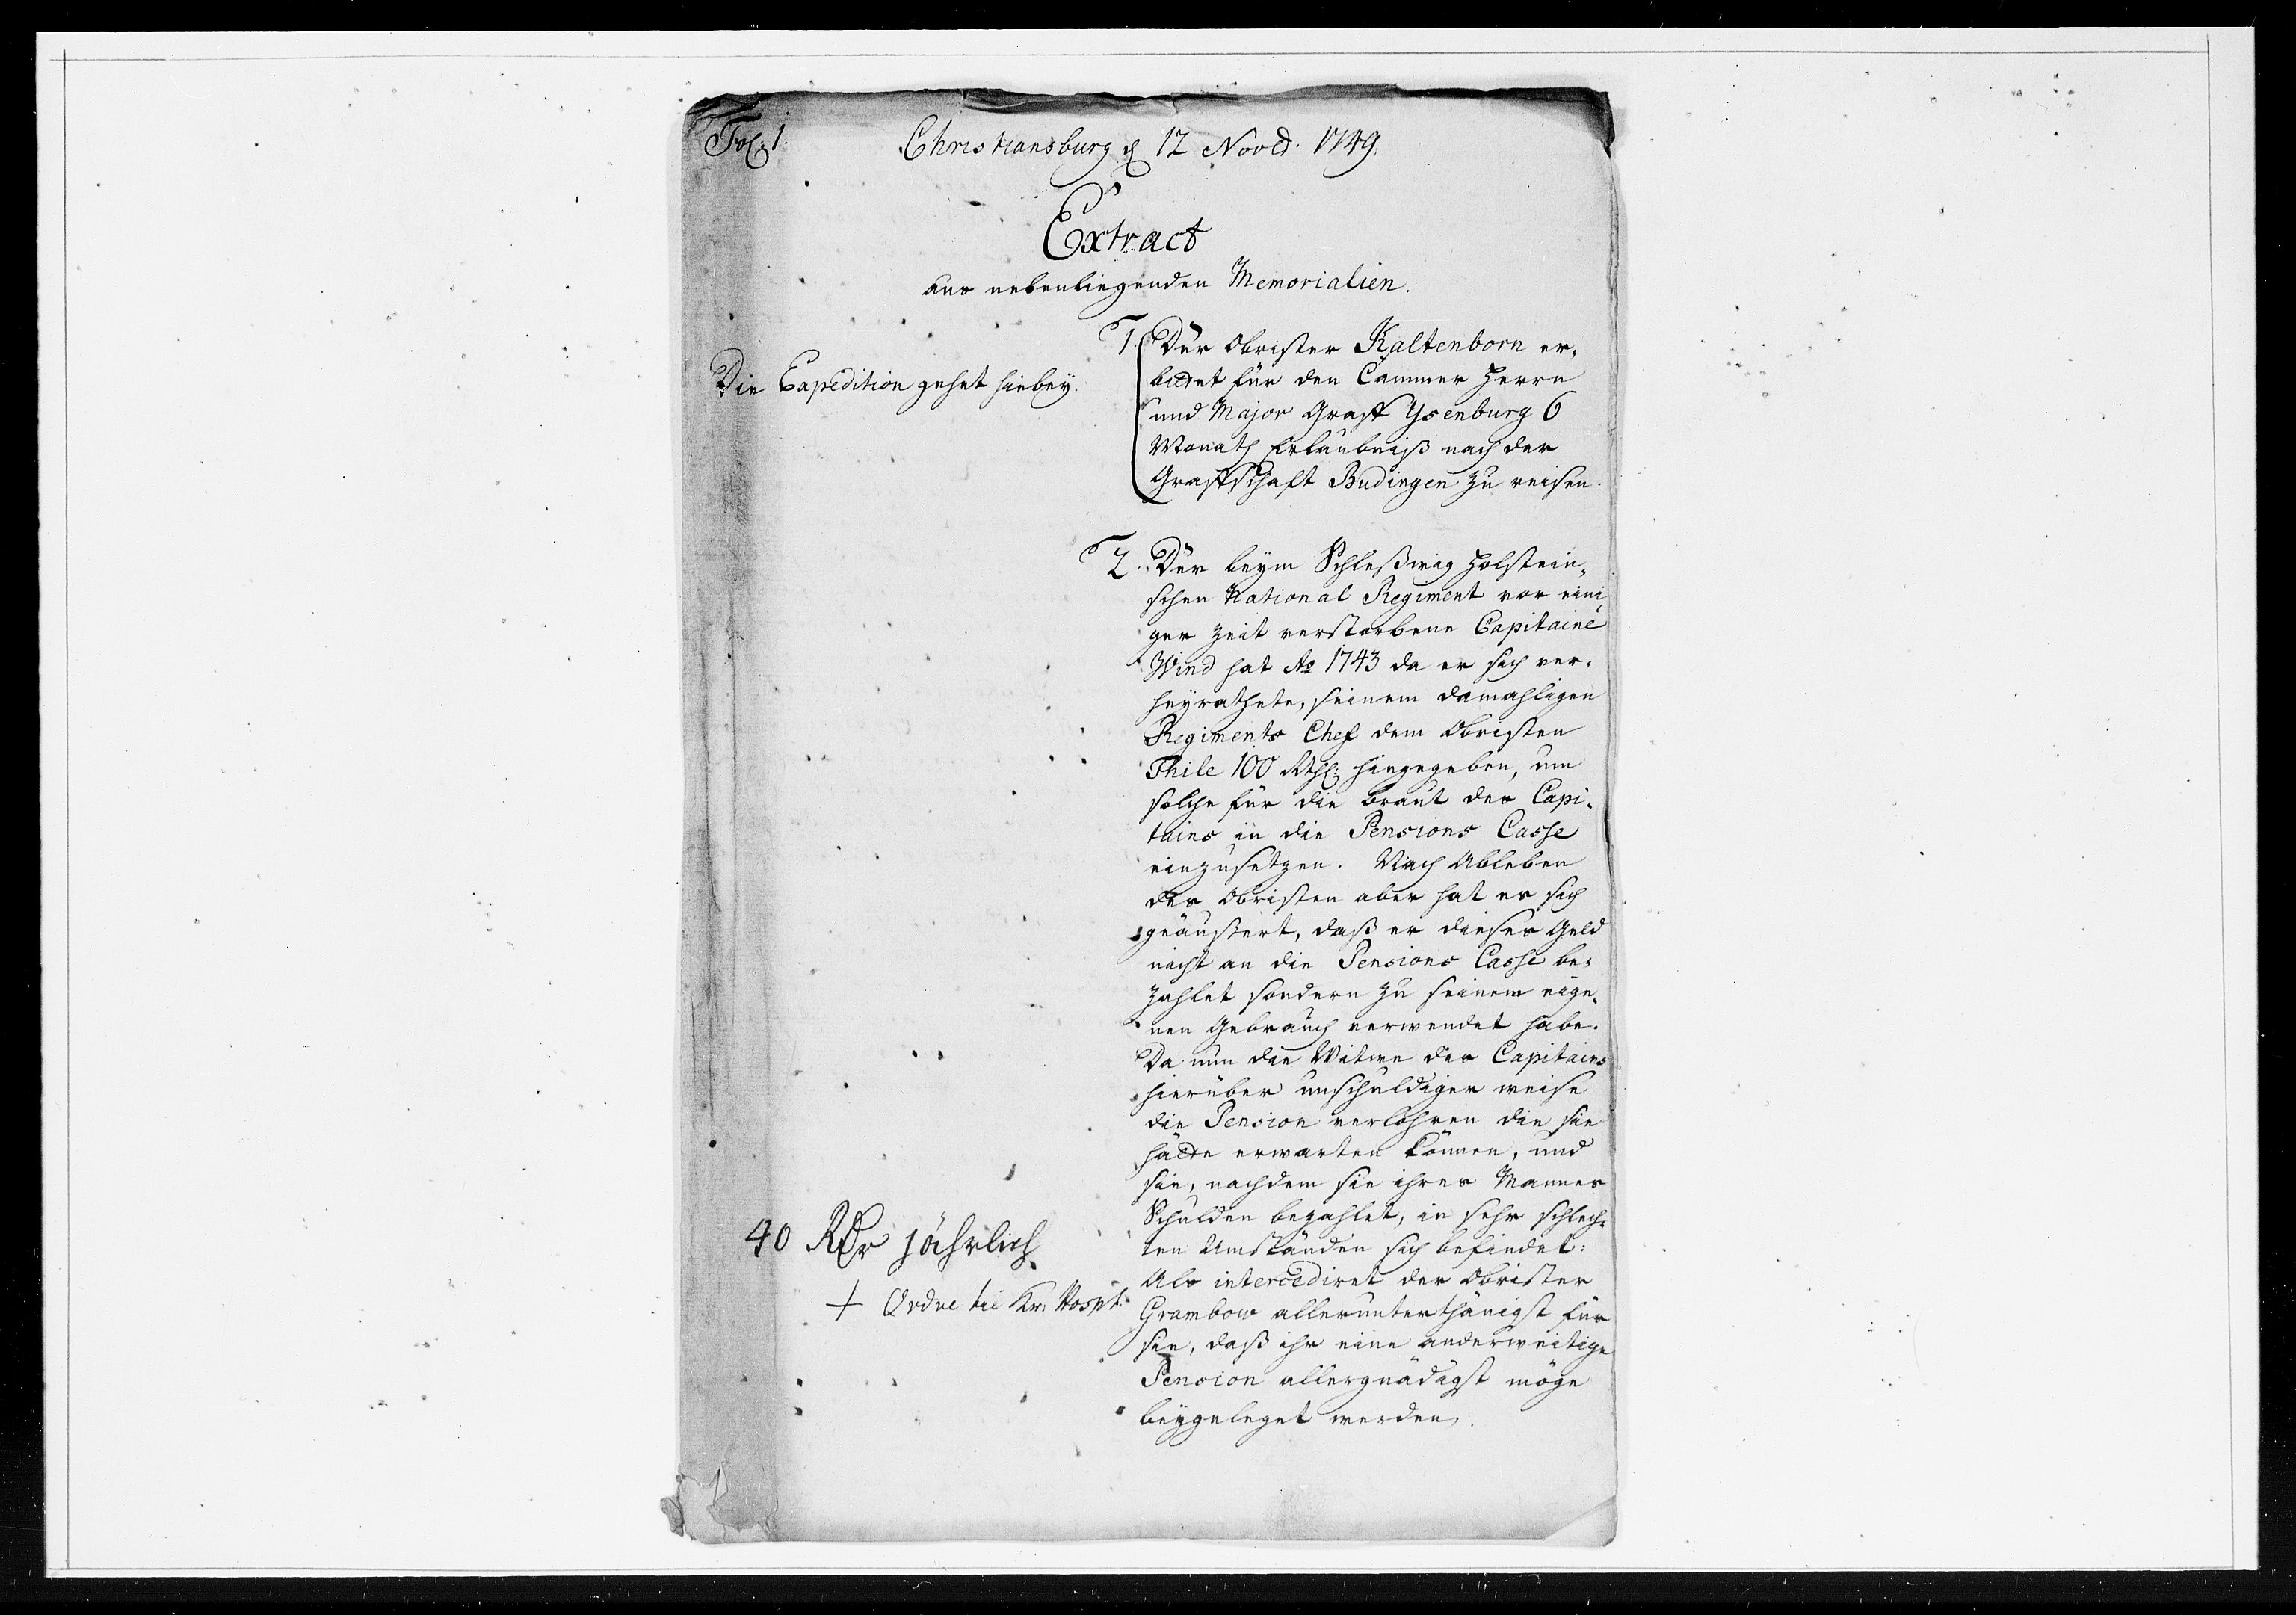 Fol: 1.
Christiansburg d 12 Novb. 1749.
Extract
aus nebenliegenden Memorialien.
1. Der Obrister Kaltenborn er-
bittet für den Cammer Herrn
und Major Graff Ysenburg 6
Monath Erlaubniß nach der
Graffschafft Budingen zu reisen.
Die Expedition gehet hiebey.
2. Der beym Schleßwig Holstein-
schen National Regiment vor eini-
ger Zeit verstorbene Capitaine
Wind hat Ao 1743 da er sich ver-
heyrathete, seinem damahligen
Regiments Chef dem Obristen
Thile 100 Rthl: hingegeben, um
solche für die Braut des Capi-
tains in die Pensions Casse
einzusetzen. Nach Ableben
des Obristen aber hat es sich
geäußert, daß er dieses Geld
nicht an die Pensions Casse be-
zahlet sondern zu seinem eige-
nen Gebrauch verwendet habe.
Da nun die Witwe des Capitains
hierüber unschuldiger weise
die Pension verlohren die sie
hätte erwarten können, und
sie, nachdem sie ihres Mannes
Schulden bezahlet, in sehr schlech-
ten Umständen sich befindet:
Als intercediret der Obrister
Grambow allerunterthänigst für
sie, daß ihr eine anderweitige
Pension allergnädigst möge
beygeleget werden.
40 Rdr jährlich
+ Ordre til Kr: Hospt: